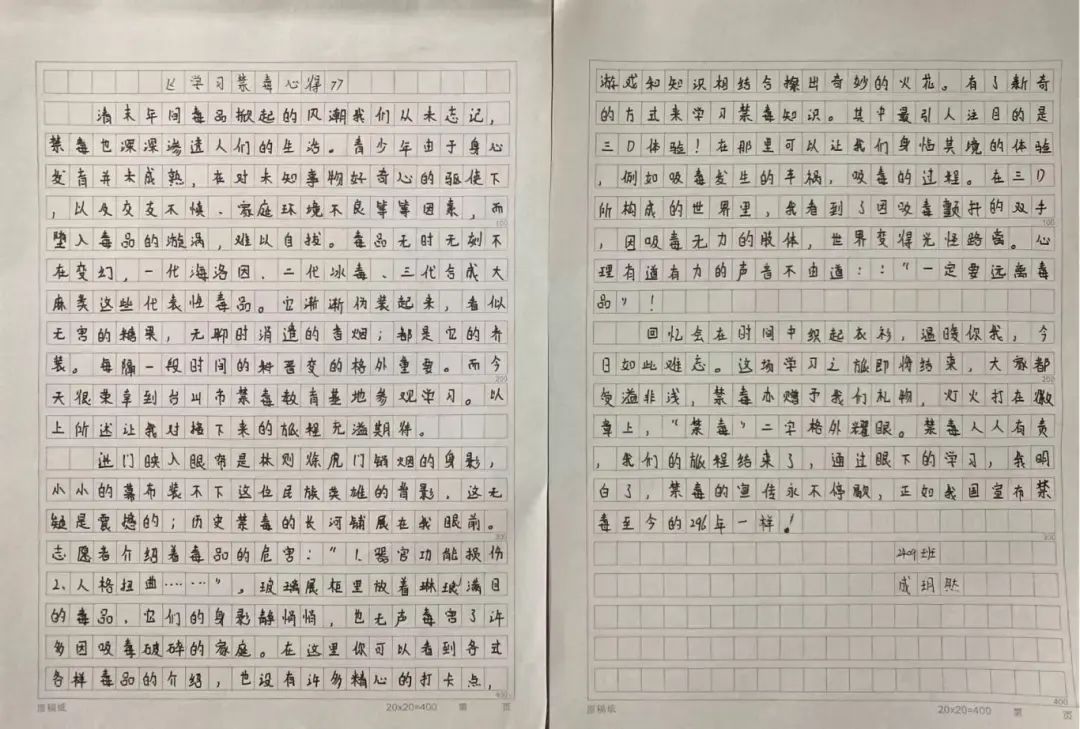 《学习禁毒心得》
清末年间毒品掀起的风潮我们从未忘记，
禁毒也深深渗透人们的生活。青少年由于身心
发育并未成熟，在对未知事物好奇心的驱使下
，以及交友不慎、家庭环境不良等等因素，而
堕入毒品的漩涡，难以自拔。毒品无时无刻不
在变幻，一代海洛因、二代冰毒、三代合成大
麻类这些代表性毒品。它渐渐伪装起来，看似
无害的糖果，无聊时消遣的香烟；都是它的乔
装。每隔一段时间的科普变的格外重要。而今
天很荣幸到台州市禁毒教育基地参观学习。以
上所述让我对接下来的旅程充溢期待。
进门映入眼帘是林则徐虎门销烟的身影，
小小的幕布装不下这位民族英雄的背影，这无
疑是震撼的；历史禁毒的长河铺展在我眼前。
志愿者介绍着毒品的危害：“1、器官功能损伤
2、人格扭曲……”。玻璃展柜里放着琳琅满目
的毒品，它们的身影静悄悄，也无声毒害了许
多因吸毒破碎的家庭。在这里你可以看到各式
各样毒品的介绍，也设有许多精心的打卡点，
400
原稿纸 20×20=400 第 页
游戏和知识相结合擦出奇妙的火花。有了新奇
的方式来学习禁毒知识。其中最引人注目的是
三D体验！在那里可以让我们身临其境的体验
，例如吸毒发生的车祸，吸毒的过程。在三D
所构成的世界里，我看到了因吸毒颤抖的双手
100
，因吸毒无力的肢体，世界变得光怪陆离。心
理有道有力的声音不由道：：“一定要远离毒
品”！
回忆会在时间中织起衣衫，温暖你我，今
日如此难忘。这场学习之旅即将结束，大家都
200
受溢非浅，禁毒亦赠予我们礼物，灯火打在徽
章上，“禁毒”二字格外耀眼。禁毒人人有责
，我们的旅程结束了，通过眼下的学习，我明
白了，禁毒的宣传永不停歇，正如我国宣布禁
毒至今的296年一样！
300
2409班
成玥
400
原稿纸 20×20=400 第 页